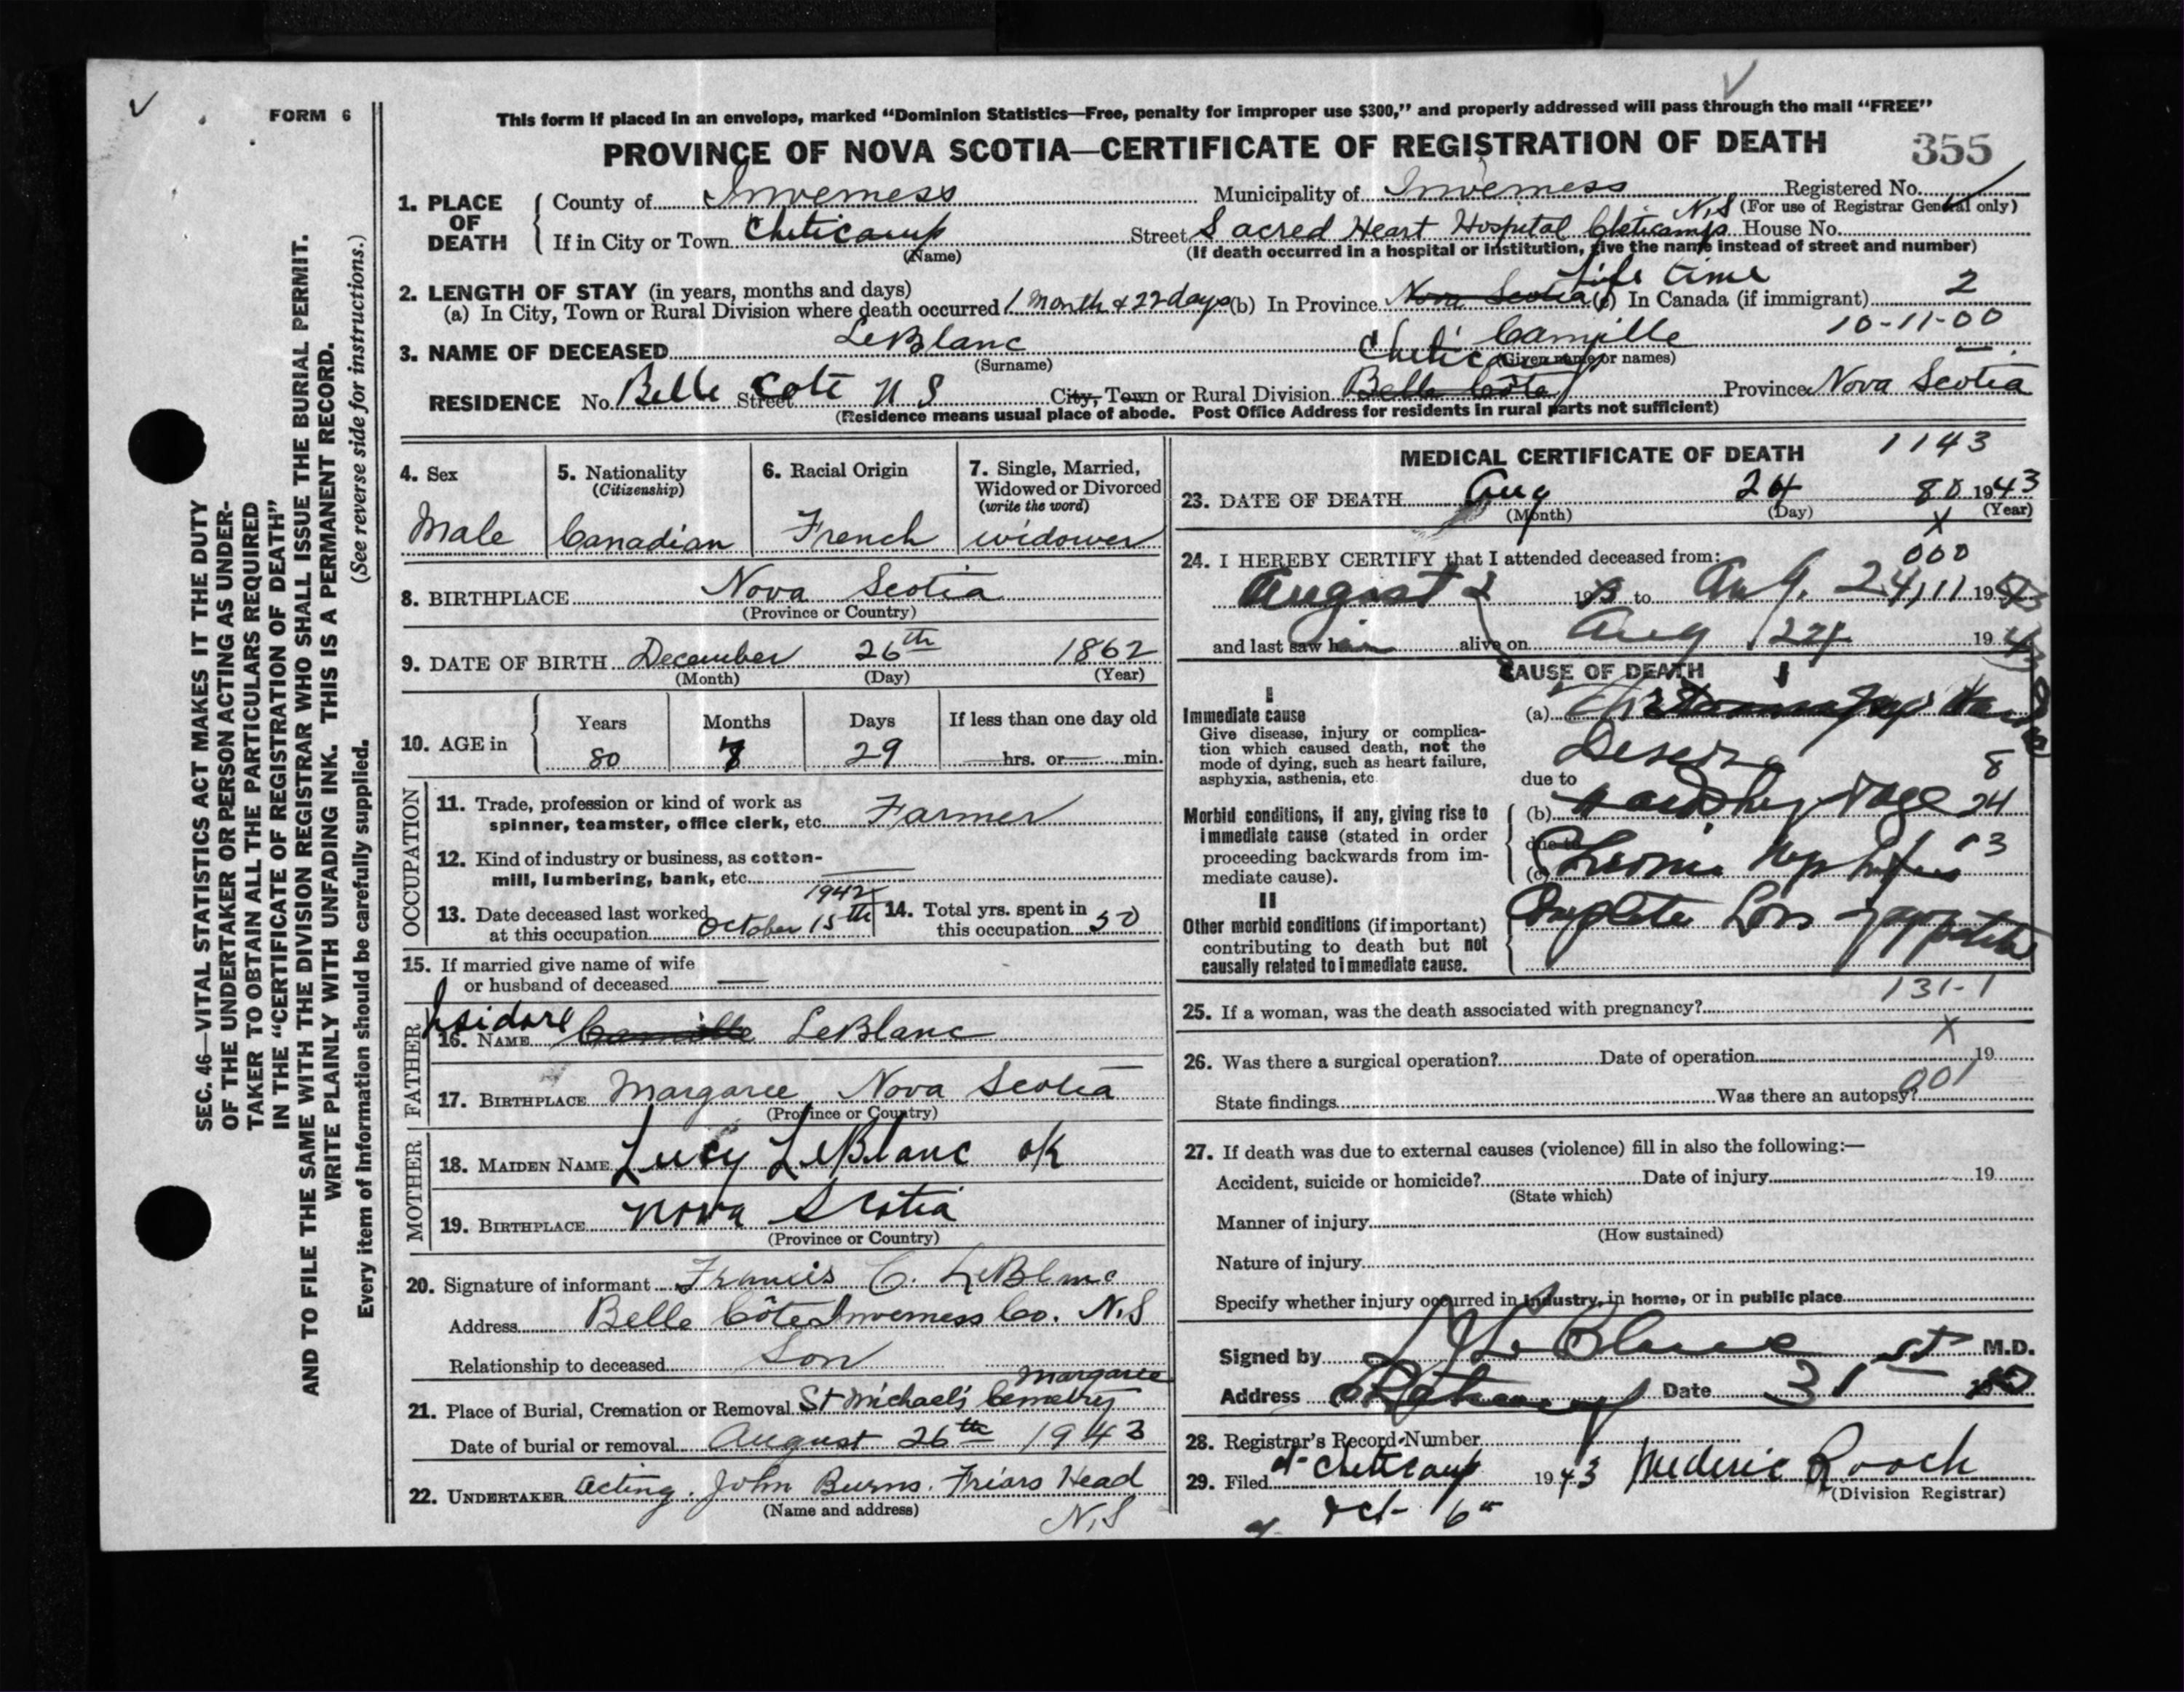 FORM 6
This form if placed in an envelope, marked “Dominion Statistics—Free, penalty for improper use $300,” and properly addressed will pass through the mail “FREE”
PROVINCE OF NOVA SCOTIA—CERTIFICATE OF REGISTRATION OF DEATH
355
1. PLACE OF DEATH
County of Inverness Municipality of Inverness Registered No.
(For use of Registrar General only)
If in City or Town Cheticamp Street Sacred Heart Hospital Cheticamp N.S House No.
(Name) (If death occurred in a hospital or institution, give the name instead of street and number)
2. LENGTH OF STAY (in years, months and days)
(a) In City, Town or Rural Division where death occurred 1 month & 22 days (b) In Province Nova Scotia Life time (c) In Canada (if immigrant) 2
10-11-00
3. NAME OF DECEASED LeBlanc Camille
(Surname) (Given name or names)
RESIDENCE No. Belle Street Cote N S City, Town or Rural Division Belle Côte Cheticamp Province Nova Scotia
(Residence means usual place of abode. Post Office Address for residents in rural parts not sufficient)
4. Sex
Male
5. Nationality
(Citizenship)
Canadian
6. Racial Origin
French
7. Single, Married,
Widowed or Divorced
(write the word)
widower
8. BIRTHPLACE Nova Scotia
(Province or Country)
9. DATE OF BIRTH December 26th 1862
(Month) (Day) (Year)
10. AGE in
Years Months Days If less than one day old
80 7 29 hrs. or min.
OCCUPATION
11. Trade, profession or kind of work as
spinner, teamster, office clerk, etc. Farmer
12. Kind of industry or business, as cotton-
mill, lumbering, bank, etc.
13. Date deceased last worked
at this occupation October 15th 1942
14. Total yrs. spent in
this occupation 50
15. If married give name of wife
or husband of deceased
FATHER
16. NAME Isidore Camille LeBlanc
17. BIRTHPLACE Margaree Nova Scotia
(Province or Country)
MOTHER
18. MAIDEN NAME Lucy LeBlanc ok
19. BIRTHPLACE Nova Scotia
(Province or Country)
20. Signature of informant Francis C. LeBlanc
Address Belle Côte Inverness Co. N.S
Relationship to deceased Son
21. Place of Burial, Cremation or Removal St Michael's Cemetry Margaree
Date of burial or removal August 26th 1943
22. UNDERTAKER Acting. John Burns. Friars Head
(Name and address) N.S
MEDICAL CERTIFICATE OF DEATH
1143
23. DATE OF DEATH Aug 24 80 1943
(Month) (Day) (Year)
X
24. I HEREBY CERTIFY that I attended deceased from: 000
August 2 19 to Aug. 24, 11 1943
and last saw him alive on Aug. 24 1943
CAUSE OF DEATH
I
Immediate cause
Give disease, injury or complica-
tion which caused death, not the
mode of dying, such as heart failure,
asphyxia, asthenia, etc.
(a)
due to
8
Morbid conditions, if any, giving rise to
immediate cause (stated in order
proceeding backwards from im-
mediate cause).
(b) age 24
due to
(c) Chronic Nephritis 3
II
Other morbid conditions (if important)
contributing to death but not
causally related to immediate cause.
Complete Loss of appetite
131-1
25. If a woman, was the death associated with pregnancy?
X
26. Was there a surgical operation? Date of operation 19
State findings Was there an autopsy? 001
27. If death was due to external causes (violence) fill in also the following:—
Accident, suicide or homicide? Date of injury 19
(State which)
Manner of injury
(How sustained)
Nature of injury
Specify whether injury occurred in industry, in home, or in public place
Signed by LeBlanc M.D.
Address Date 31st
28. Registrar's Record Number
29. Filed at Cheticamp 1943 Mederic Rooch
(Division Registrar)
Oct 6th
SEC. 46—VITAL STATISTICS ACT MAKES IT THE DUTY
OF THE UNDERTAKER OR PERSON ACTING AS UNDER-
TAKER TO OBTAIN ALL THE PARTICULARS REQUIRED
IN THE “CERTIFICATE OF REGISTRATION OF DEATH”
AND TO FILE THE SAME WITH THE DIVISION REGISTRAR WHO SHALL ISSUE THE BURIAL PERMIT.
WRITE PLAINLY WITH UNFADING INK. THIS IS A PERMANENT RECORD.
(See reverse side for instructions.)
Every item of information should be carefully supplied.